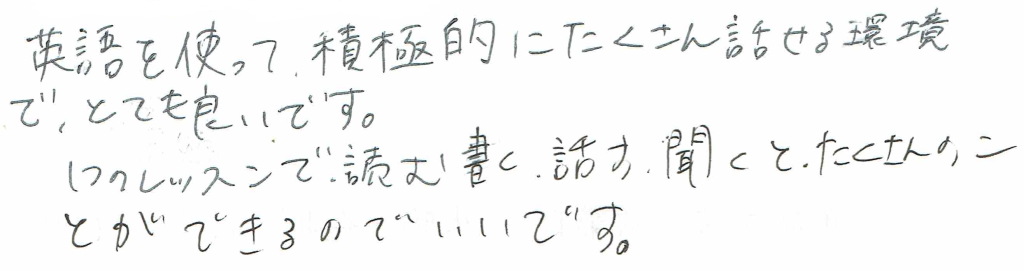 英語を使って、積極的にたくさん話せる環境
で、とても良いです。
1つのレッスンで、読む、書く、話す、聞くと、たくさんのこ
とができるのでいいです。